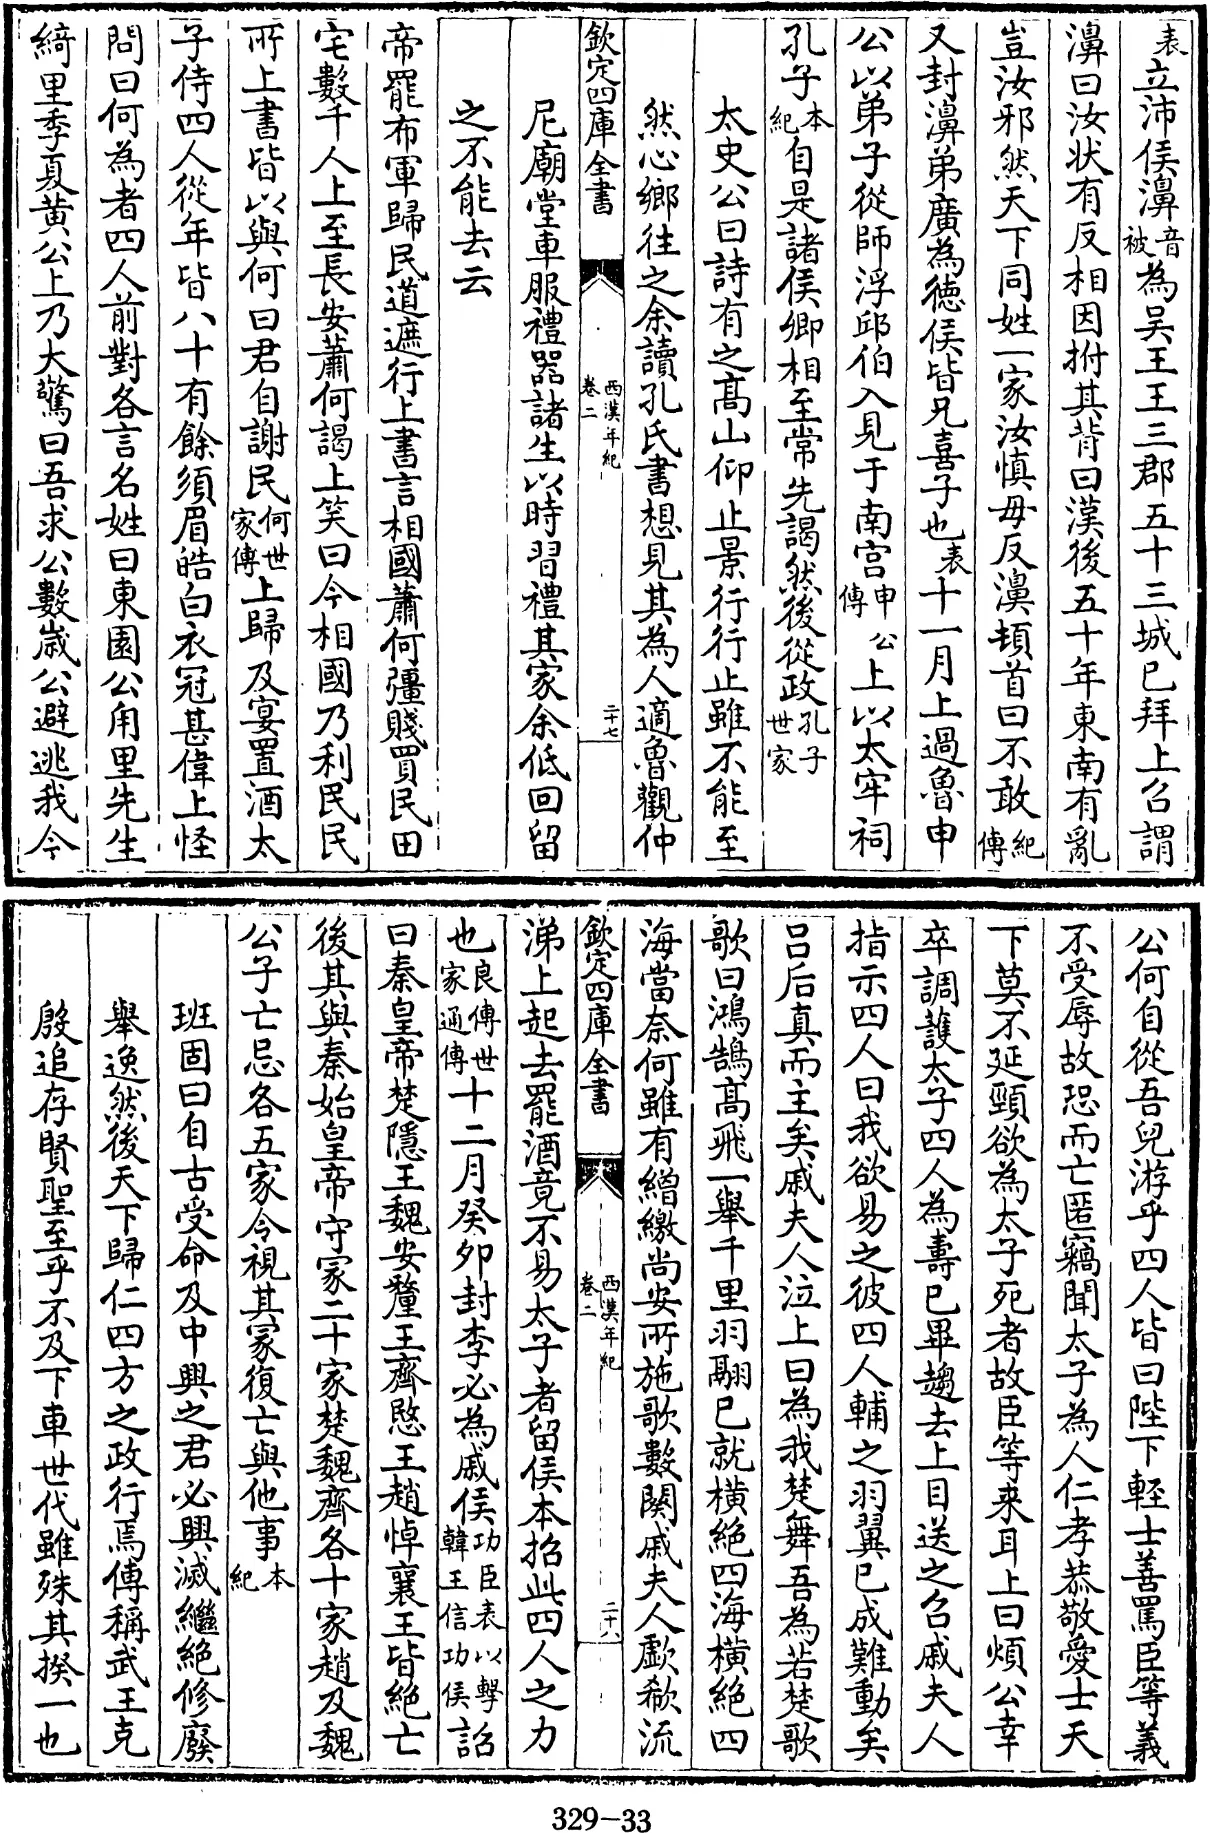 表立沛侯濞音被為吴王王三郡五十三城已拜上召謂
濞曰汝状有反相因拊其背曰漢後五十年東南有亂
豈汝邪然天下同姓一家汝慎毋反濞頓首曰不敢紀傳
又封濞弟廣為徳侯皆兄喜子也表十一月上過魯申
公以弟子從師浮邱伯入見于南宫申公傳上以太牢祠
孔子本紀自是諸侯卿相至常先謁然後從政孔子世家
太史公曰詩有之高山仰止景行行止雖不能至
然心鄉往之余讀孔氏書想見其為人適魯觀仲
欽定四庫全書
西漢年紀
卷二
二十七
尼廟堂車服禮器諸生以時習禮其家余低回留
之不能去云
帝罷布軍歸民道遮行上書言相國蕭何彊賤買民田
宅數千人上至長安蕭何謁上笑曰今相國乃利民民
所上書皆以與何曰君自謝民何世家傳上歸及宴置酒太
子侍四人從年皆八十有餘須眉皓白衣冠甚偉上怪
問曰何為者四人前對各言名姓曰東園公甪里先生
綺里季夏黄公上乃大驚曰吾求公數歲公避逃我今
公何自從吾兒游乎四人皆曰陛下輕士善罵臣等義
不受辱故恐而亡匿竊聞太子為人仁孝恭敬愛士天
下莫不延頸欲為太子死者故臣等来耳上曰煩公幸
卒調護太子四人為壽已畢趨去上目送之召戚夫人
指示四人曰我欲易之彼四人輔之羽翼已成難動矣
吕后真而主矣戚夫人泣上曰為我楚舞吾為若楚歌
歌曰鴻鵠高飛一舉千里羽翮已就横絶四海横絶四
海當奈何雖有繒繳尚安所施歌數闋戚夫人歔欷流
欽定四庫全書
西漢年紀
卷二
二十八
涕上起去罷酒竟不易太子者留侯本招此四人之力
也良傳世家通傳十二月癸夘封李必為戚侯功臣表以擊韓王信功侯詔
曰秦皇帝楚隱王魏安釐王齊愍王趙悼襄王皆絶亡
後其與秦始皇帝守冡二十家楚魏齊各十家趙及魏
公子亡忌各五家令視其冡復亡與他事本紀
班固曰自古受命及中興之君必興滅繼絶修廢
舉逸然後天下歸仁四方之政行焉傳稱武王克
殷追存賢聖至乎不及下車世代雖殊其揆一也
329-33